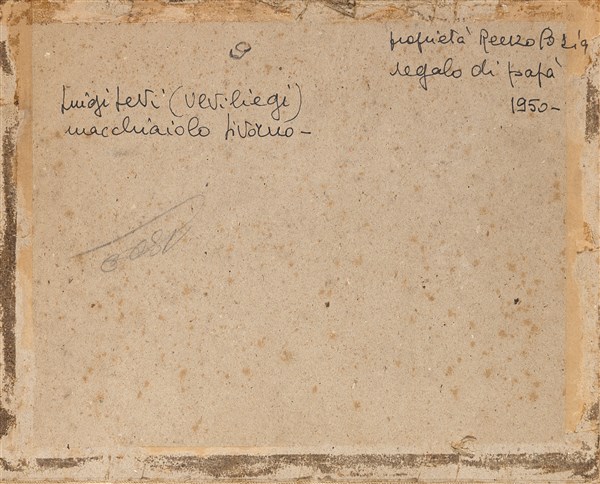 proprietà Renzo
regalo di papà
1950-
Luigi Levi (Ulvi liegi)
macchiaiolo Livorno-